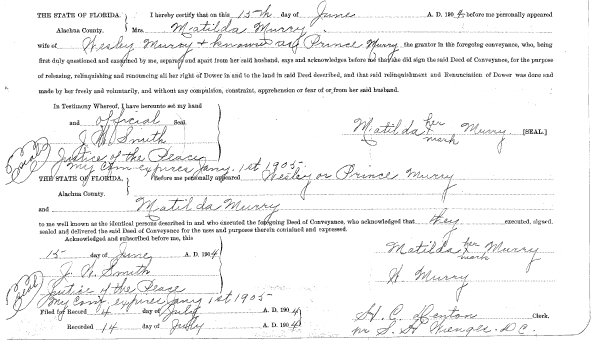 THE STATE OF FLORIDA. I hereby certify that on this 15th day of June A. D. 1904 before me personally appeared
Alachua County. Mrs. Matilda Murry
wife of Wesley Murry & known as Prince Murry the grantor in the foregoing conveyance, who, being
first duly questioned and examined by me, separate and apart from her said husband, says and acknowledges before me that she did sign the said Deed of Conveyance, for the purpose
of releasing, relinquishing and renouncing all her right of Dower in and to the land in said Deed described, and that said relinquishment and Renunciation of Dower was done and
made by her freely and voluntarily, and without any compulsion, constraint, apprehension or fear of or from her said husband.
In Testimony Whereof, I have hereunto set my hand
and official Seal.
J. W. Smith
Matilda her x mark Murry. [SEAL.]
Seal
Justice of the Peace
My Com expires Jany. 1st 1905
THE STATE OF FLORIDA. Before me personally appeared Wesley or Prince Murry
Alachua County.
and Matilda Murry
to me well known as the identical persons described in and who executed the foregoing Deed of Conveyance, who acknowledged that they executed, signed,
sealed and delivered the said Deed of Conveyance for the uses and purposes therein contained and expressed.
Acknowledged and subscribed before me, this
15 day of June A. D. 1904
Matilda her x mark Murry
J. W. Smith
W Murry
Seal
Justice of the Peace
My Com expires Jany 1st 1905
Filed for Record 4 day of July A. D. 1904
H. C. Denton Clerk,
Recorded 14 day of July 1904
pr S. H. D. C.